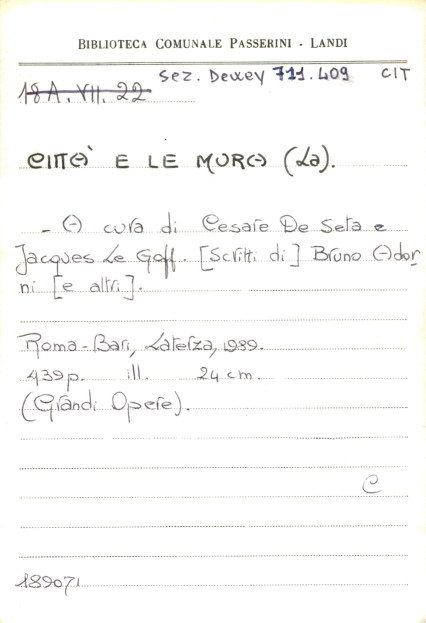 BIBLIOTECA COMUNALE PASSERINI - LANDI
Sez. Dewey 711.409 CIT
18A.VII.22
CITTA' E LE MURA (La).
- A cura di Cesare De Seta e
Jacques Le Goff. [Scritti di] Bruno Ador
ni [e altri].
Roma-Bari, Laterza, 1989.
439p. ill. 24 cm.
(Grandi Opere).
C
189071